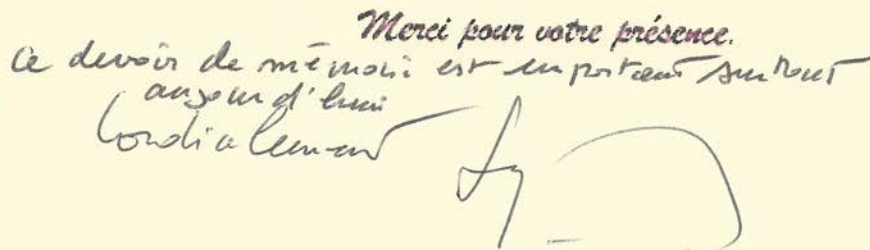 Merci pour votre présence.
Ce devoir de mémoire est important surtout
aujourd'hui
Cordialement